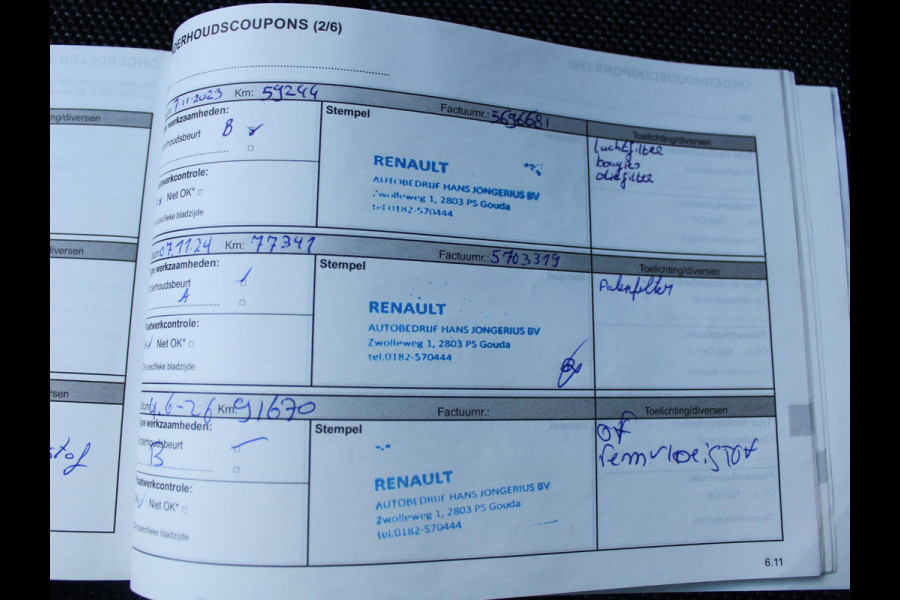 NDERHOUDSCOUPONS (2/6)
7.11.2023 Km: 59244
Factuurnr.: 5696681
ng/diversen
werkzaamheden:
Stempel
Toelichting/diversen
houdsbeurt B
luchtfilter
bougies
oliefilter
RENAULT
AUTOBEDRIJF HANS JONGERIUS BV
Zwolleweg 1, 2803 PS Gouda
tel.0182-570444
werkcontrole:
Niet OK*
specifieke bladzijde
07.11.24 Km: 77341
Factuurnr.: 5703319
iversen
pe werkzaamheden:
Stempel
Toelichting/diversen
derhoudsbeurt
A
Pollenfilter
RENAULT
AUTOBEDRIJF HANS JONGERIUS BV
Zwolleweg 1, 2803 PS Gouda
tel.0182-570444
aatwerkcontrole:
Niet OK*
specifieke bladzijde
6-26 Km: 91670
Factuurnr.:
rsen
ype werkzaamheden:
Stempel
Toelichting/diversen
nderhoudsbeurt
B
of
remvloeistof
stof
RENAULT
AUTOBEDRIJF HANS JONGERIUS BV
Zwolleweg 1, 2803 PS Gouda
tel.0182-570444
aatwerkcontrole:
Niet OK*
specifieke bladzijde
6.11